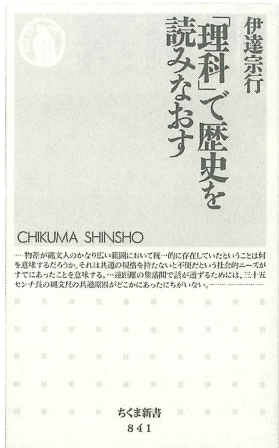 伊達宗行
「理科」で歴史を
読みなおす
CHIKUMA SHINSHO
…… 物差が縄文人のかなり広い範囲において統一的に存在していたということは何
を意味するだろうか。それは共通の規格を持たないと不便だという社会的ニーズが
すでにあったことを意味する。…遠距離の集落間で話が通ずるためには、三十五
センチ長の縄文尺の共通原器がどこかにあったにちがいない。……
ちくま新書
841